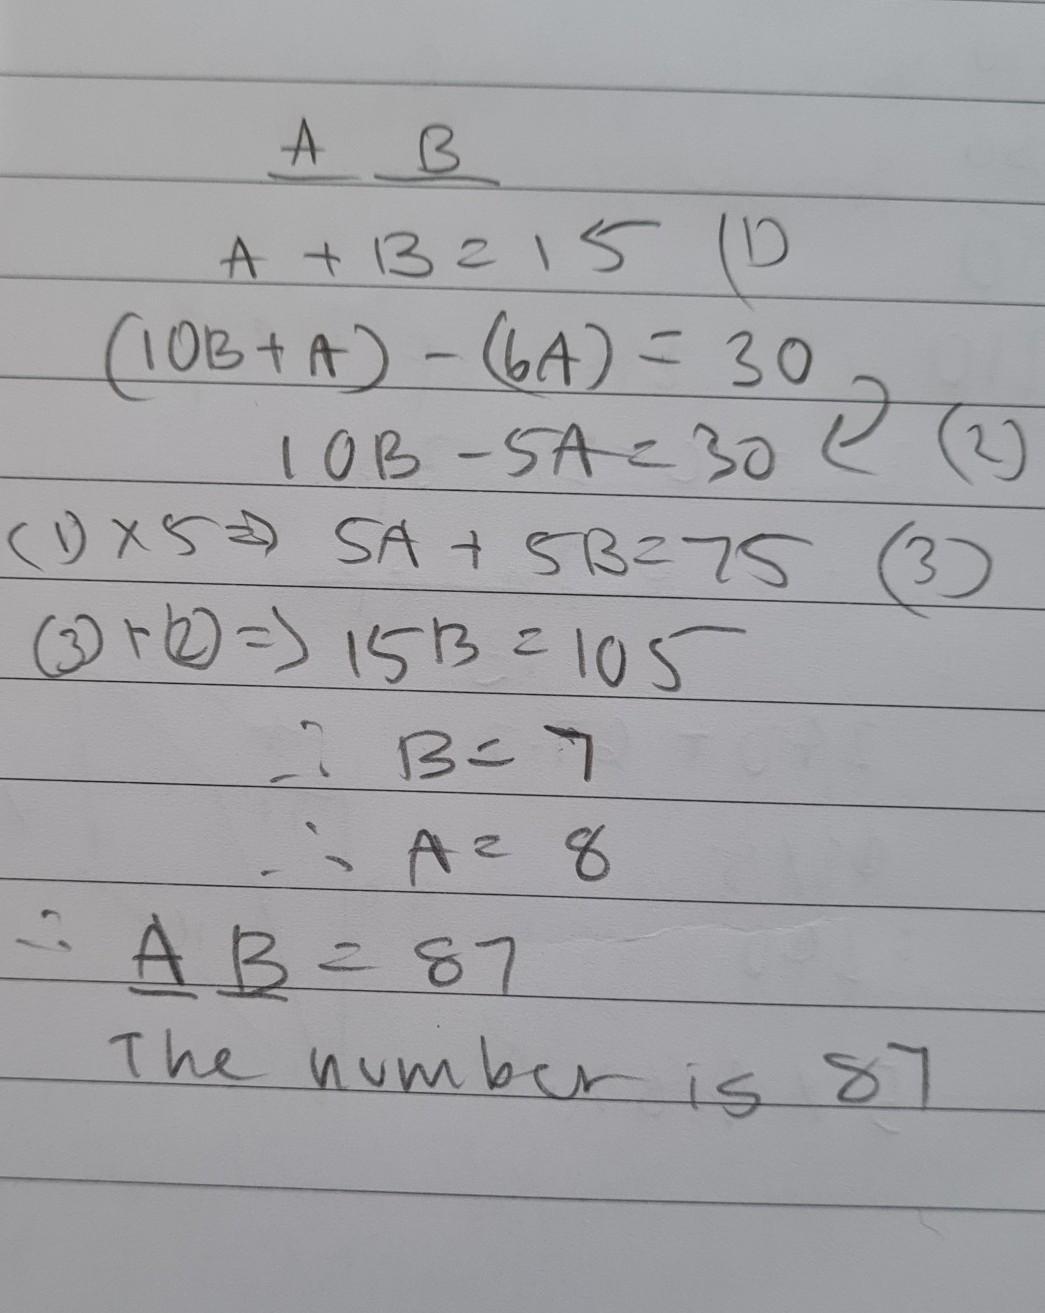 A B
A + B = 15 (1)
(10B + A) - (6A) = 30
10B - 5A = 30 (2)
(1) × 5 ⇒ 5A + 5B = 75 (3)
(3) + (2) ⇒ 15B = 105
∴ B = 7
∴ A = 8
∴ A B = 87
The number is 87